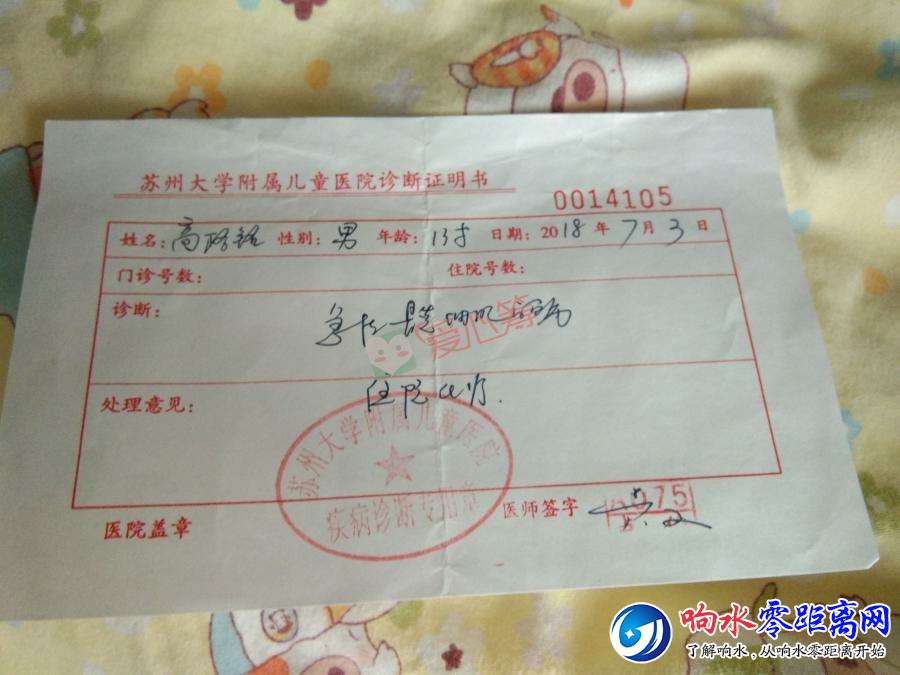 苏州大学附属儿童医院诊断证明书
0014105
姓名：高 性别：男 年龄：13才 日期：2018年7月3日
门诊号数： 住院号数：
诊断：
急性 细胞白血病
爱心筹
处理意见： 住院化疗.
苏州大学附属儿童医院
疾病诊断专用章
医院盖章 医师签字
响水零距离网
了解响水，从响水零距离开始